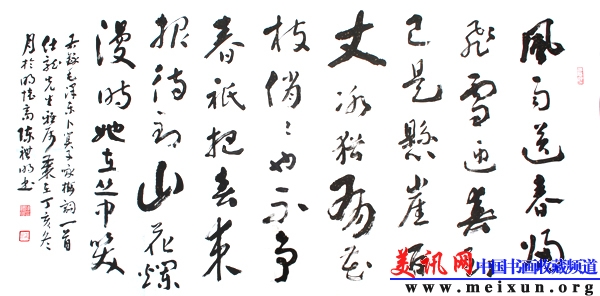 風雨送春歸
飛雪迎春到
已是懸崖百
丈冰猶有花
枝俏〻也不争
春祇把春來
報待到山花爛
漫時她在丛中笑
毛泽东卜算子咏梅詞一首
先生雅属 歲在丁亥冬
月於
美讯网
中国书画收藏频道
www.meixun.org